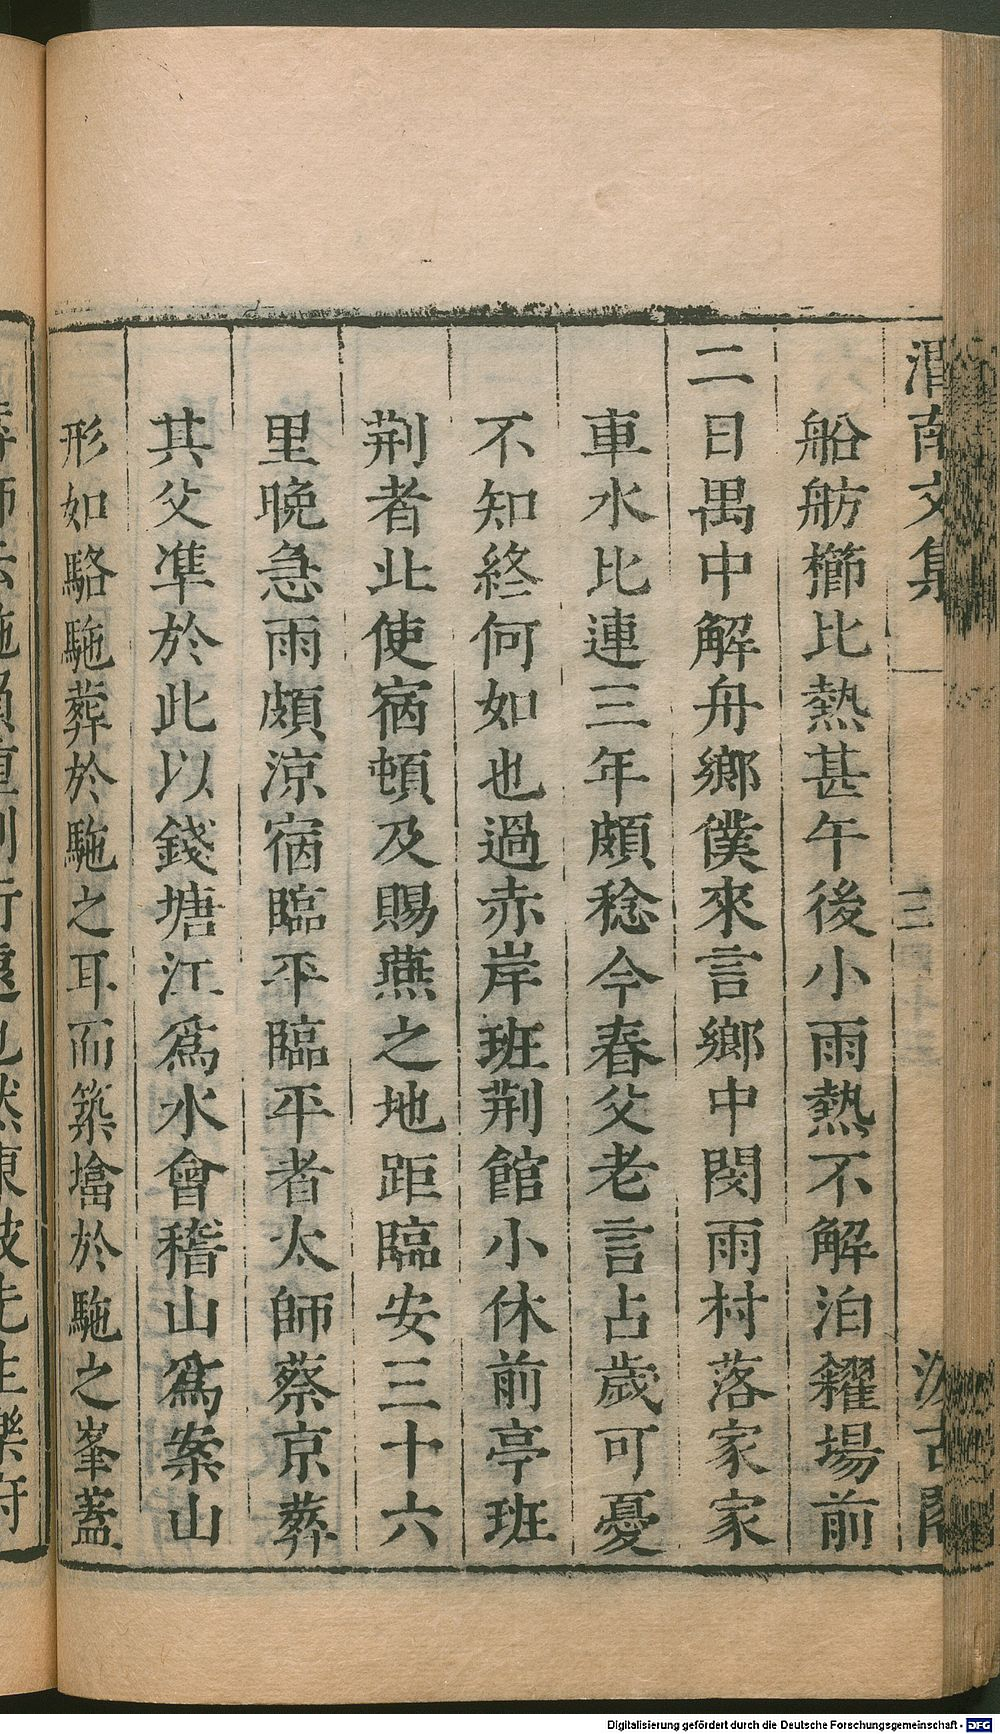 渭南文集 三 汲古閣
船舫櫛比熱甚午後小雨熱不解泊糴場前
二日禺中解舟鄉僕來言鄉中閔雨村落家家
車水比連三年頗稔今春父老言占歲可憂
不知終何如也過赤岸班荆館小休前亭班
荆者北使宿頓及賜燕之地距臨安三十六
里晚急雨頗涼宿臨平臨平者太師蔡京葬
其父準於此以錢塘江爲水會稽山爲案山
形如駱駞葬於駞之耳而築墖於駞之峯蓋
Digitalisierung gefördert durch die Deutsche Forschungsgemeinschaft - DFG